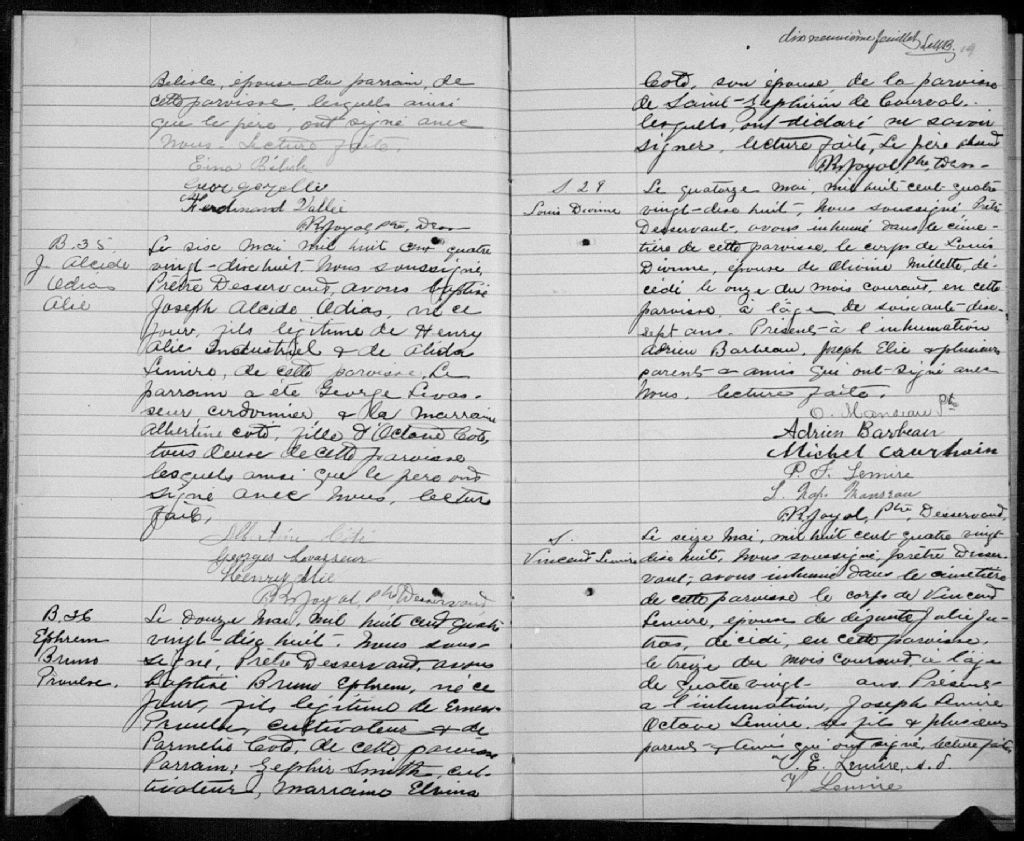 Belisle, épouse du parrain, de
cette paroisse, lesquels ainsi
que le père, ont signé avec
Nous. Lecture faite.
Ferdinand Vallée
P. R. Joyal, Ptre, Dess
B. 35
J. Alcide
Adias
Alie
Le sixe Mai mil huit cent quatre
vingt-dixhuit. Nous soussigné,
Prêtre Desservant, avons baptisé
Joseph Alcide Adias, né ce
jour, fils légitime de Henry
Alie Industriel & de Alida
Lemire, de cette paroisse. Le
parrain a été George Levas-
seur cordonnier & la marraine
Albertine Coté, fille d'Octave Coté,
tous deux de cette paroisse
lesquels ainsi que le père ont
signé avec Nous, lecture
faite.
Albertine Coté
Georges Levasseur
Henry Alie
P. R. Joyal, Ptre, Desservant
B. 36
Ephrem
Bruno
Le douze Mai, mil huit cent quatre
vingt-dix huit. Nous sous-
signé, Prêtre Desservant, avons
baptisé Bruno Ephrem, né ce
jour, fils légitime de Ernest
cultivateur & de
Parmelie Coté, de cette paroisse
Parrain; Zephir Smith, cul-
tivateur, Marraine Elvina
dix neuvième feuillet 19
Coté, son épouse de la paroisse
de Saint-Zéphirin de Courval.
lesquels, ont déclaré ne savoir
signer, lecture faite, Le père
P. R. Joyal, Ptre, Dess
S. 29
Louis Divine
Le quatorze mai, mil huit cent quatre
vingt-dix huit, Nous soussigné, Prêtre
Desservant, avons inhumé dans le cime-
tière de cette paroisse, le corps de Louis
Divine, épouse de Olivine Millette, dé-
cédé le onze du mois courant, en cette
paroisse, à l'âge de soixante-dixe-
sept ans. Présents à l'inhumation
Adrien Barbeau, Joseph Elie & plusieurs
parents & amis qui ont signé avec
Nous, lecture faite.
O. Manseau Pt
Adrien Barbeau
Michel Caurhain
P. F. Lemire
L. Nap. Manseau
P. R. Joyal, Ptre, Desservant
S.
Vincent Lemire
Le seize Mai, mil huit cent quatre vingt
dix huit, Nous soussigné, prêtre Desser-
vant, avons inhumé dans le cimetière
de cette paroisse le corps de Vincent
Lemire, épouse de défunte Julie Ju-
tras, décédé, en cette paroisse,
le treize du mois courant, à l'âge
de quatre vingt- ans. Présents
à l'inhumation, Joseph Lemire
Octave Lemire, ses fils & plusieurs
parents & amis qui ont signé, lecture faite
V. E. Lemire, s.d.
V Lemire